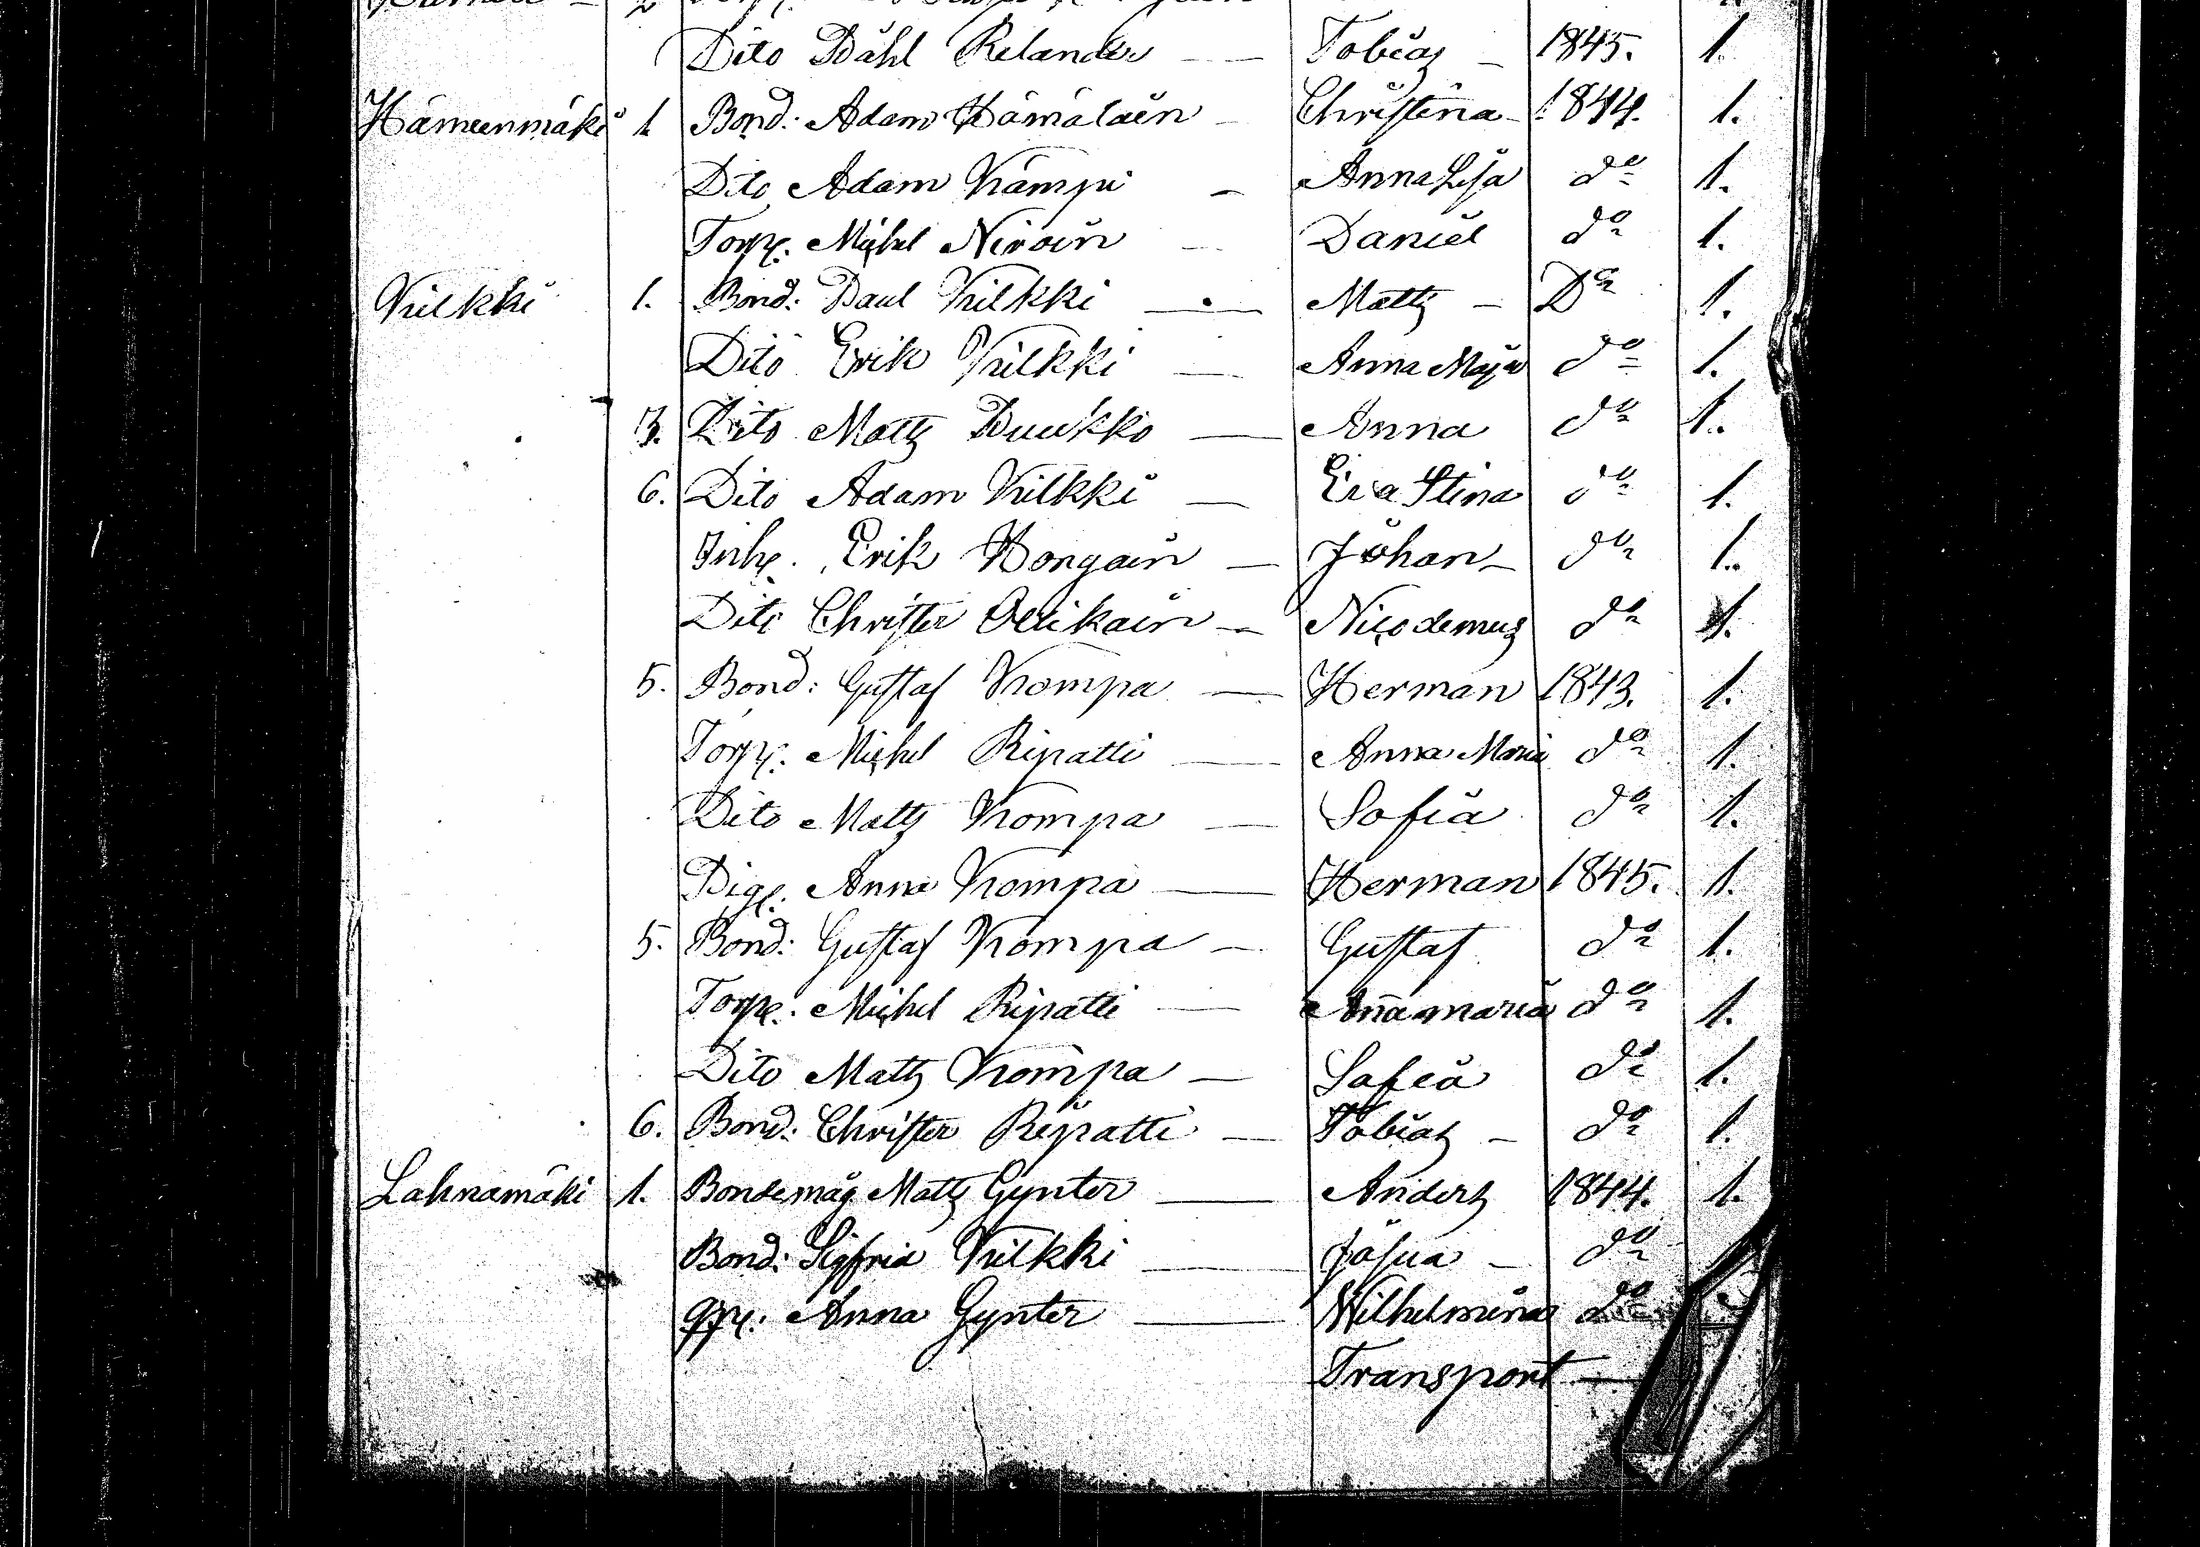 Dito Påhl Relander — Tobias – 1845. 1.
Hämeenmäki 1. Bond: Adam Hämäläin – Christina – 1844. 1.
Dito Adam Kämpi – Anna Lisa do 1.
Torp: Michel Niroin – Daniel do 1.
Vilkki 1. Bond: Paul Vilkki — Matts – Do 1.
Dito Erik Vilkki — Anna Maja do 1.
3. Dito Matts Puukko — Anna do 1.
6. Dito Adam Vilkki — Eva Stina do 1.
Inh: Erik Hongain — Johan – do 1.
Dito Christer Ollikain — Nicodemus do 1.
5. Bond: Gustaf Kompa — Herman 1843. 1.
Torp: Michel Ripatti — Anna Maria do 1.
Dito Matts Kompa — Sofia do 1.
Pig: Anna Kompa — Herman 1845. 1.
5. Bond: Gustaf Kompa — Gustaf do 1.
Torp: Michel Ripatti — Anna maria do 1.
Dito Matts Kompa — Sofia do 1.
6. Bond: Christer Ripatti — Tobias – do 1.
Lahnamäki 1. Bondemåg Matts Gynter — Anders 1844. 1.
Bond: Sigfrid Vilkki — Josua – do
Anna Gynter — Wilhelmina do
Transport —